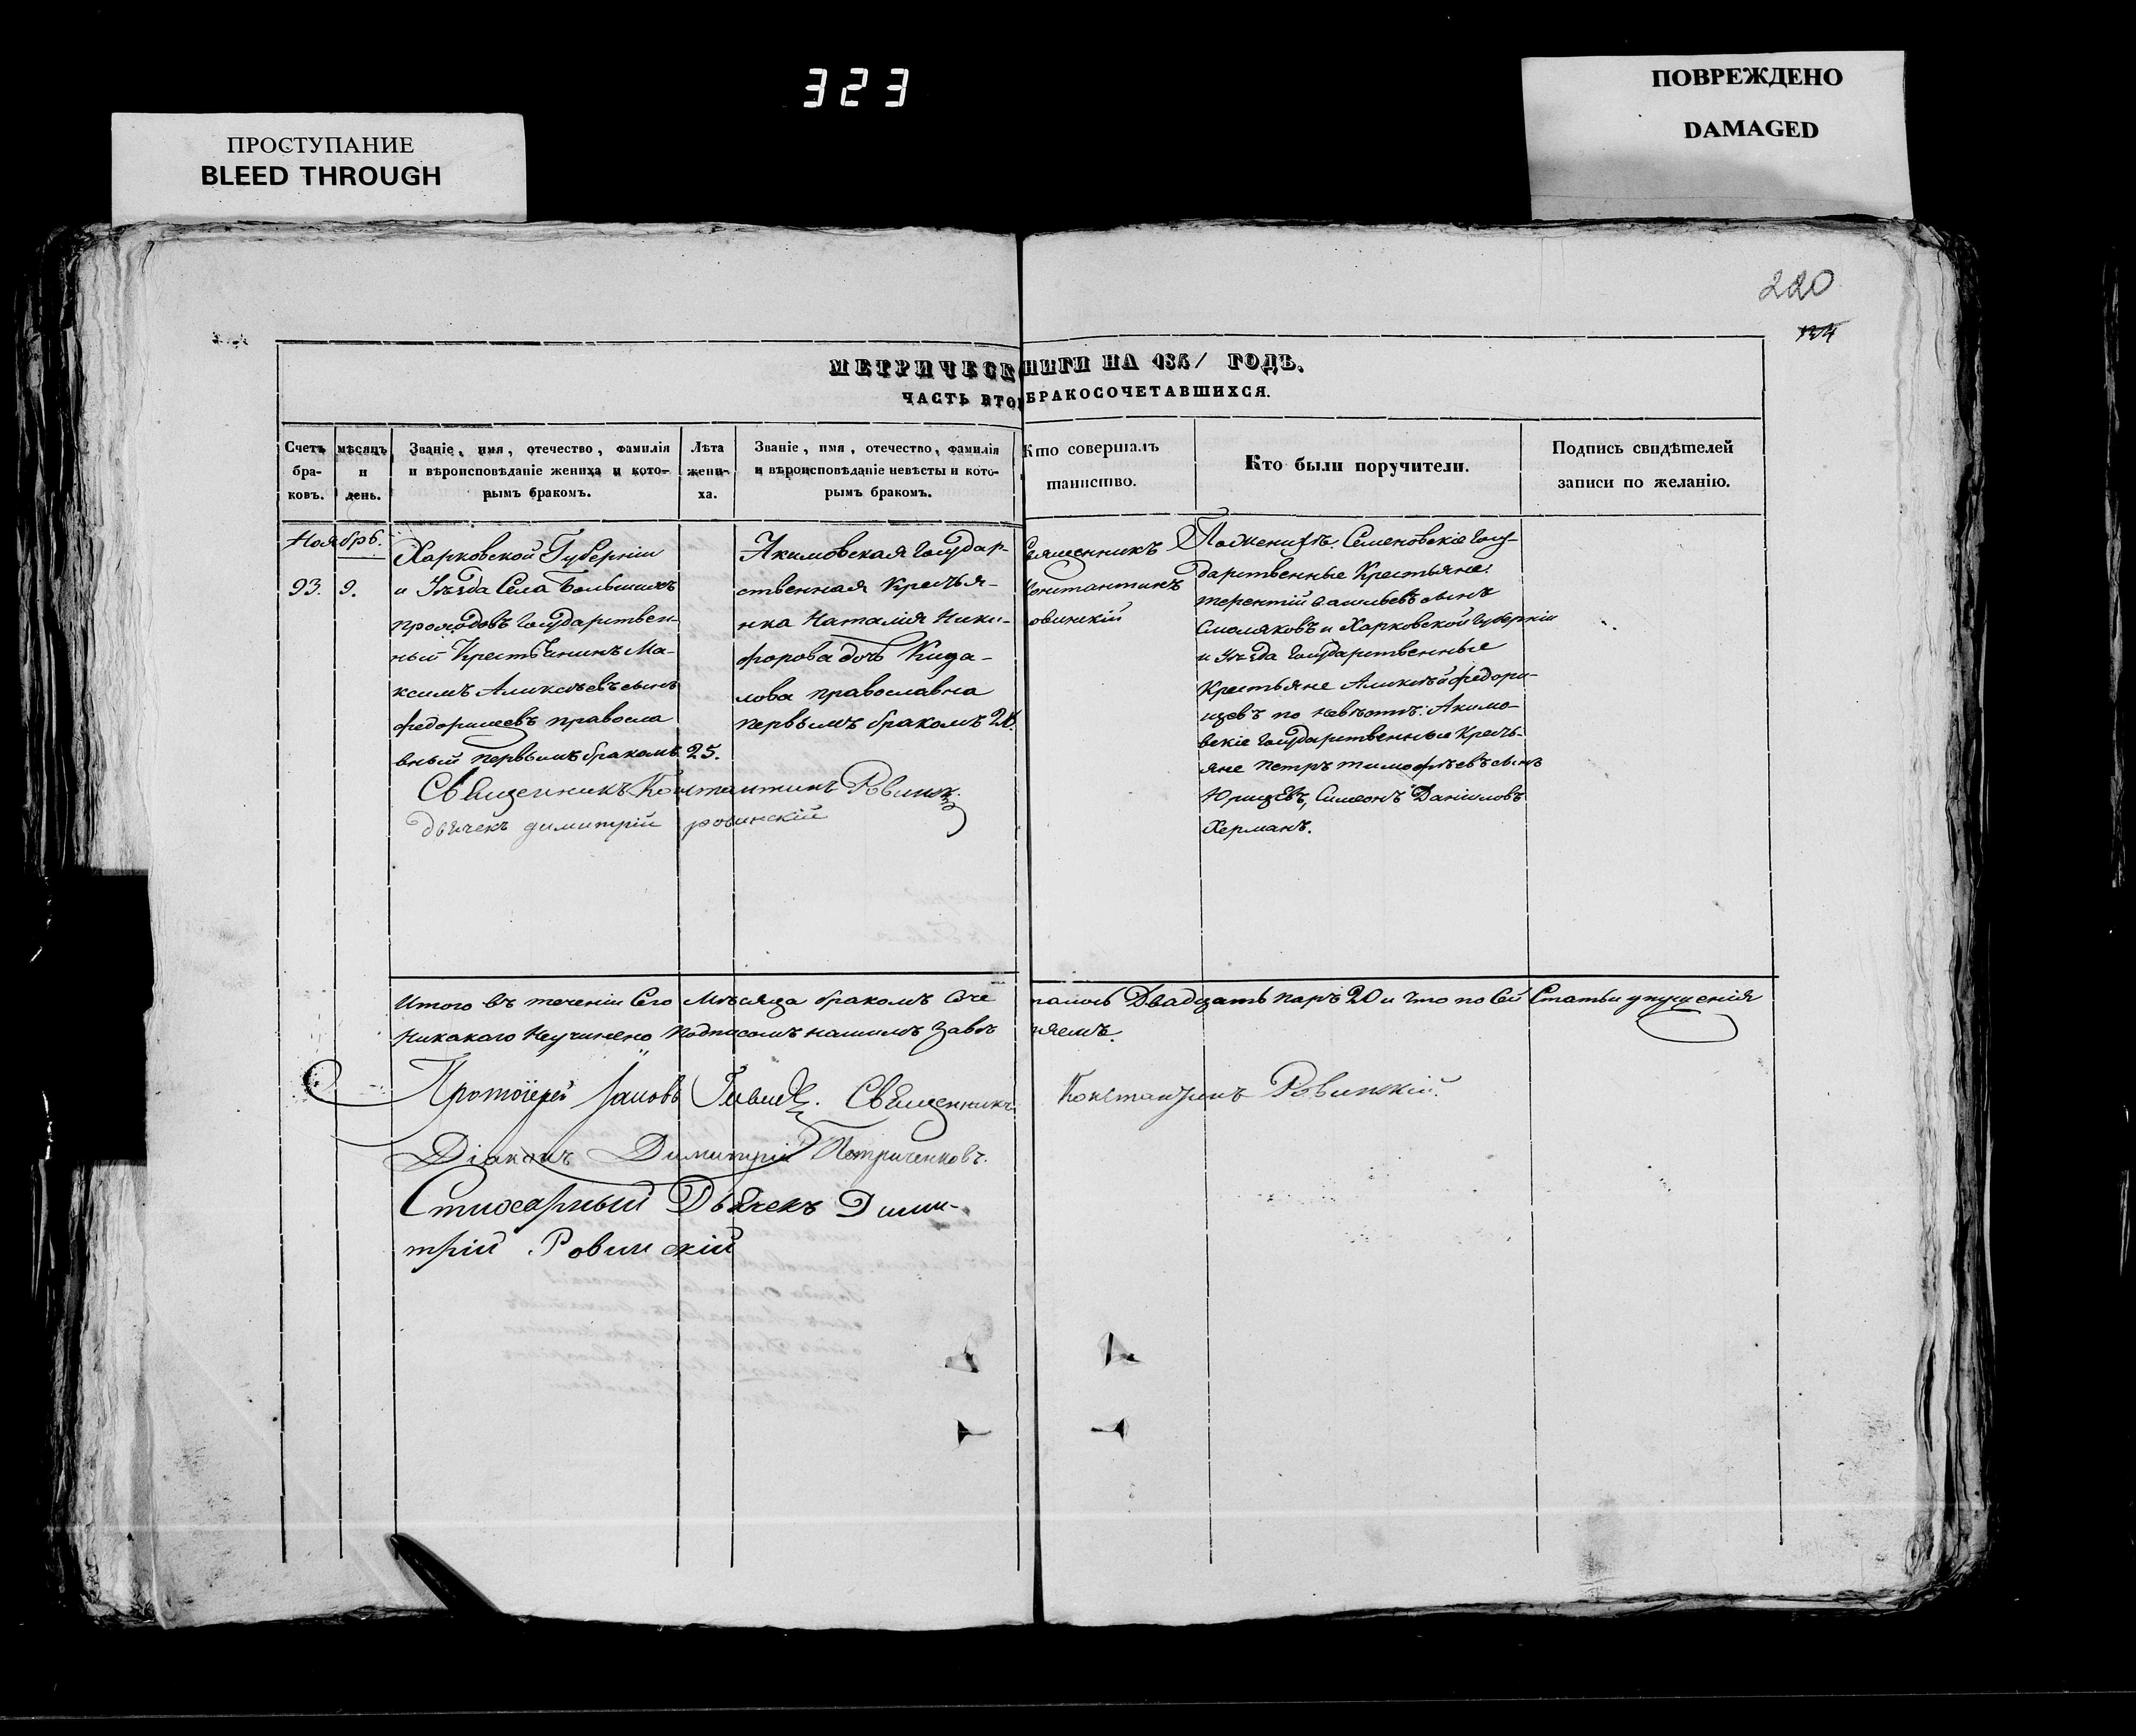 323
ПРОСТУПАНИЕ
BLEED THROUGH
ПОВРЕЖДЕНО
DAMAGED
220
МЕТРИЧЕСК НИГИ НА 185/ ГОДЪ.
ЧАСТЬ ВТО БРАКОСОЧЕТАВШИХСЯ.
Счетъ бра- ковъ.
мѣсяцъ и день.
Званіе, имя, отечество, фамилія
и вѣроисповѣданіе жениха и кото-
рымъ бракомъ.
Лѣта жени- ха.
Званіе, имя, отечество, фамилія
и вѣроисповѣданіе невѣсты и кото-
рымъ бракомъ.
Кто совершалъ
таинство.
Кто были поручители.
Подпись свидѣтелей
записи по желанію.
Ноябрь.
93. 9.
Харковской Губерніи
и Уѣзда Села Большихъ
проходовъ Государствен-
ный Крестьянинъ Ма-
ксимъ Аликсѣевъ сынъ
федорищевъ правосла
вный первымъ бракомъ 25.
Акимовская Государ-
ственная Кресьтя-
нка Наталія Ники-
форова дочь Кида-
лова православна
первымъ бракомъ 20.
Священникъ
Константинъ
овинскій
По женихѣ: Семеновскіе Госу-
дарственные Крестьяне:
терентій васильевъ сынъ
Смоляковъ и Харковской Губерніи
и Уѣзда Государственные
Крестьяне Аликсѣй федори-
щевъ по невѣстѣ: Акимо-
вскіе Государственные Кресть-
яне петръ тимофѣевъ сынъ
Юрищевъ, Симеонъ Даніиловъ
Херманъ.
Священникъ Константинъ Ровинск.
дьячекъ димитрій ровинскій
Итого въ теченіи Сего Мѣсяца бракомъ Соче талось Двадцать паръ 20 и что по Сей Статьи упущенія
Никакаго Неучинено подписомъ нашимъ Завѣ ряемъ.
Протоіерей Іаковъ Священникъ Константинъ Ровинскій.
Діаконъ Димитрій Петриченковъ.
Стихарный Дьячекъ Дими-
трій Ровинскій